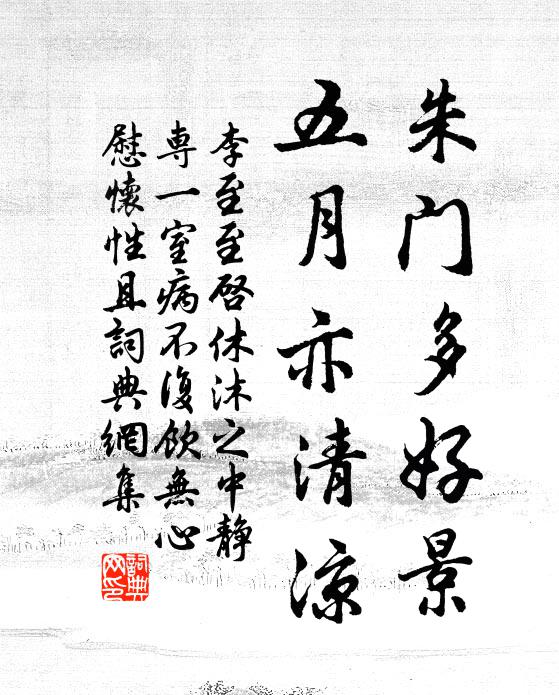 朱门多好景
五月亦清凉
李至至启休沐之中静
専一室病不復飲無心
慰懷性且詞典網集
詞典
网印